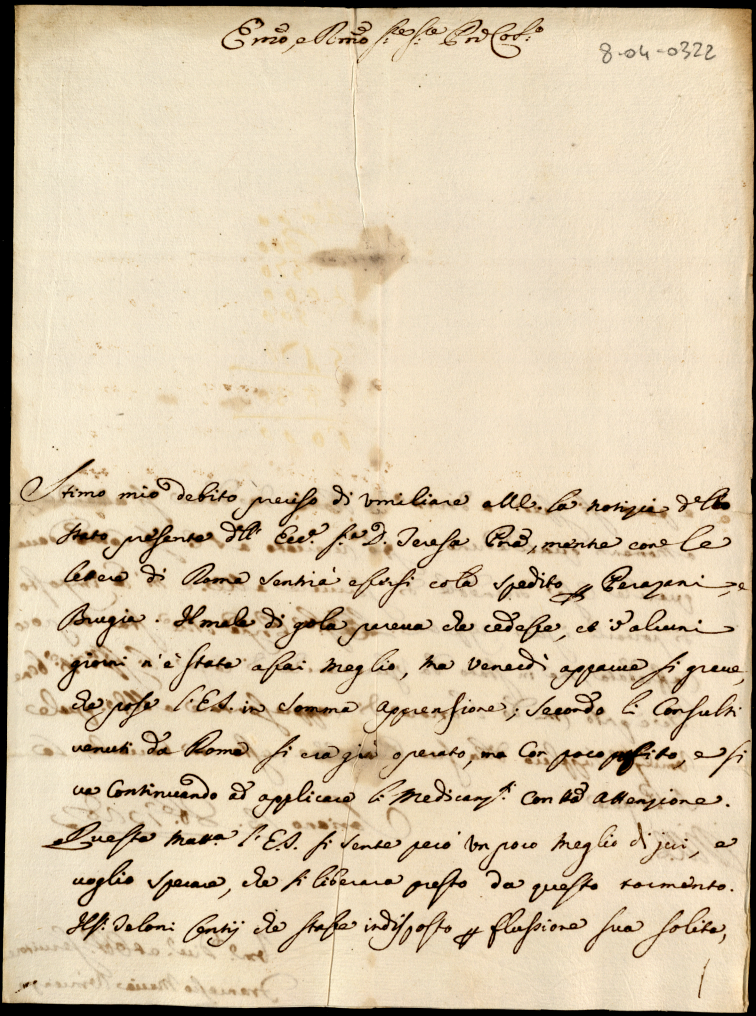 Emo, e Rmo Sre Sre Pne Colmo
8-04-0322
Stimo mio debito preciso di umiliare all'E.V. la notizia dello
stato presente dell' Ecc.ma S.ra D. Teresa Pne, mentre con le
lettere di Roma sentirà essersi colà spedito per Perazani, e
Brugia. Il male di gola pareva che cedesse, et in alcuni
giorni n'è stata assai meglio, ma Venerdì apparve sì grave,
che pose l'E.S. in somma apprensione; secondo li Consulti
venuti da Roma si era già operato, ma con poco profitto, e si
va continuando ad applicare li Medicam.ti con tta attenzione.
Questa matt.a l'E.S. si sente però un poco meglio di jeri, e
voglio sperare, che si liberarà presto da questo tormento.
Il Sr. Centij che stasse indisposto per flussione sua solita,